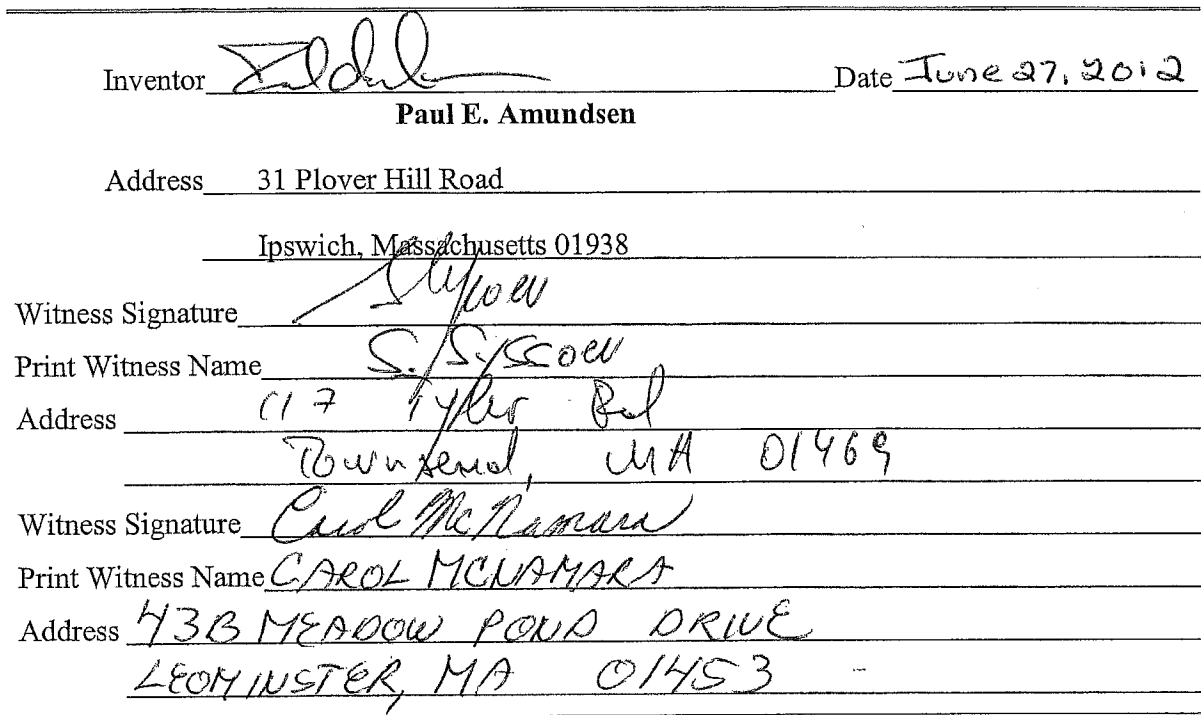 Inventor Date June 27, 2012
Paul E. Amundsen
Address 31 Plover Hill Road
Ipswich, Massachusetts 01938
Witness Signature
Print Witness Name S. Syssoev
Address 117 Tyler Rd
Townsend, MA 01469
Witness Signature Carol McNamara
Print Witness Name CAROL MCNAMARA
Address 43B MEADOW POND DRIVE
LEOMINSTER, MA 01453